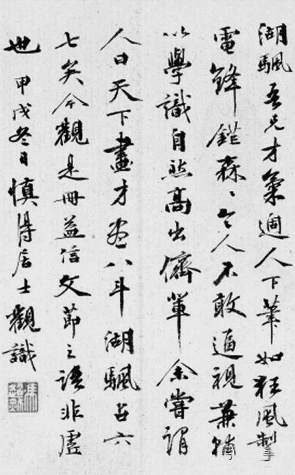 湖颿吾兄才氣過人下筆如狂風掣
電鋒鋩森森令人不敢逼視兼補
以學識自然高出儕輩余嘗謂
人曰天下畫才若八斗湖颿占六
七矣今觀是冊益信文節之語非虛
也甲戌冬日慎得居士觀識